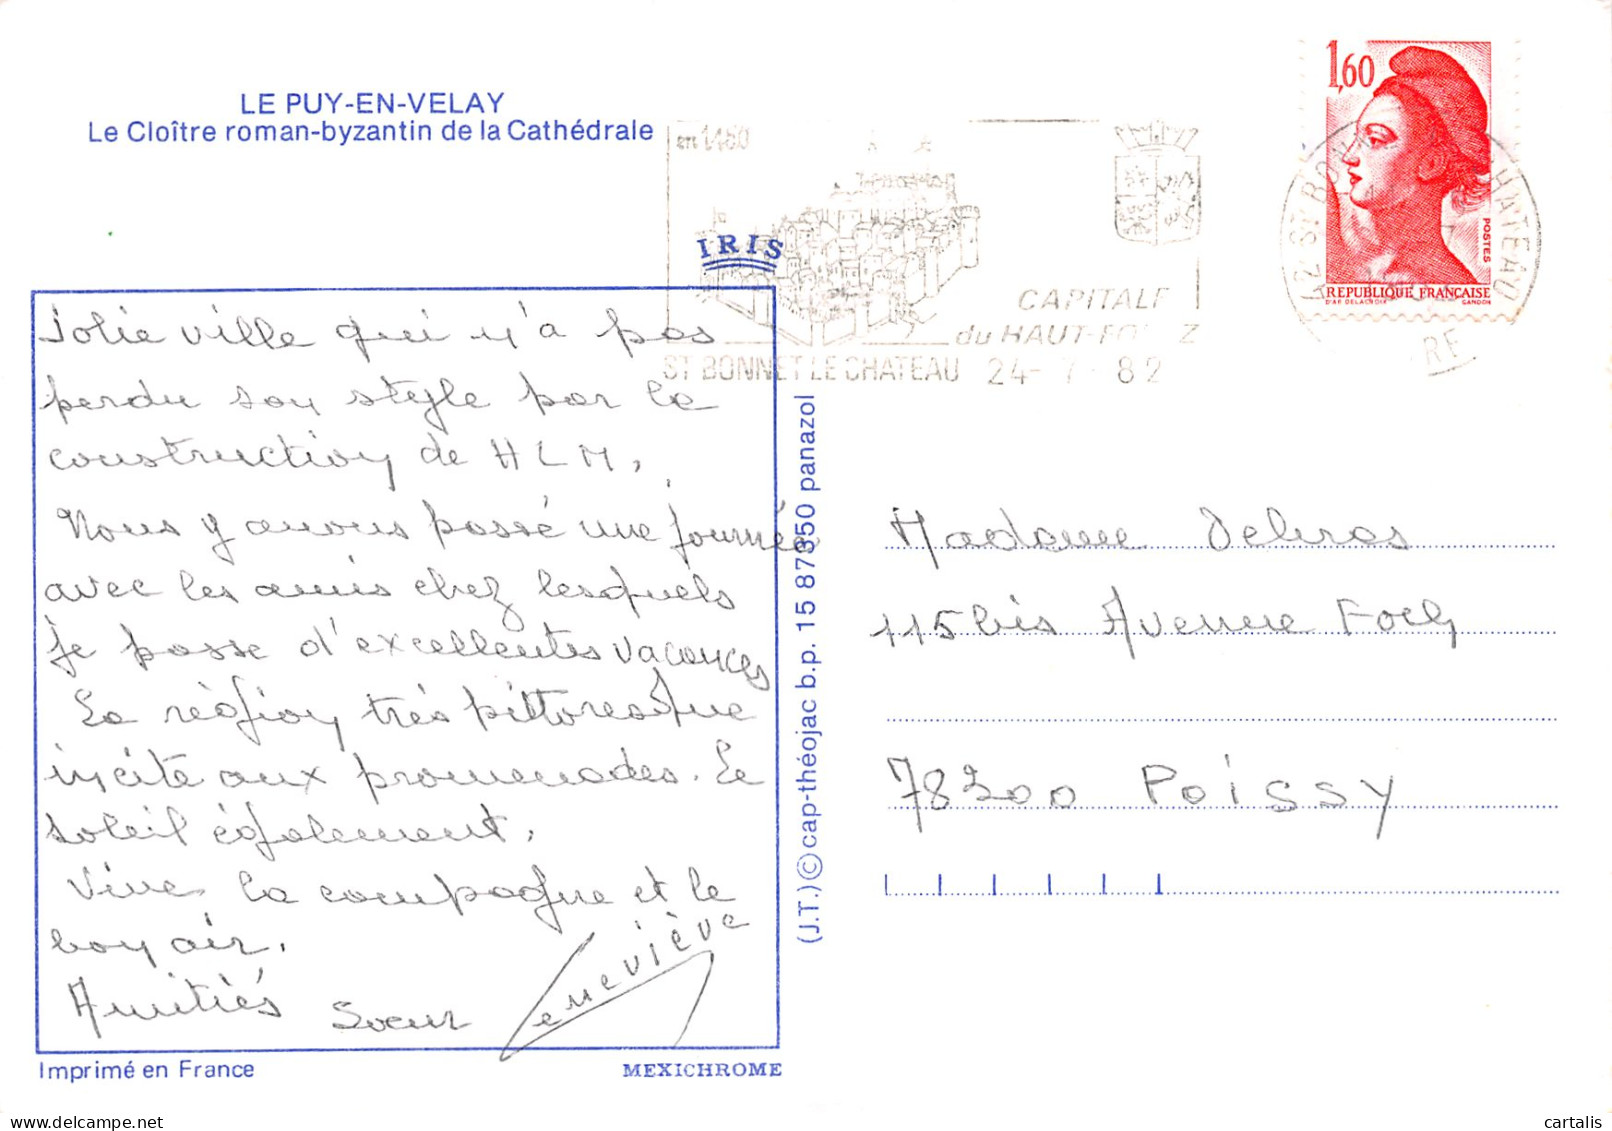 LE PUY-EN-VELAY
Le Cloître roman-byzantin de la Cathédrale
IRIS
Jolie ville qui n'a pas
perdu son style par la
construction de HLM.
Nous y avons passé une journée
avec les amis chez lesquels
je passe d'excellentes vacances
La région très pittoresque
incite aux promenades. Le
soleil également.
Vive la campagne et le
bon air.
Amitiés Soeur Geneviève
Imprimé en France
MEXICHROME
(J.T.) © cap-théojac b.p. 15 87350 panazol
en 1460
CAPITALE
du HAUT-FOREZ
ST BONNET LE CHATEAU 24-7-82
1,60
POSTES
REPUBLIQUE FRANÇAISE
D'AP. DELACROIX GANDON
42 ST BONNET CHATEAU
Madame Debras
115 bis Avenue Foch
78300 Poissy
cartalis
www.delcampe.net